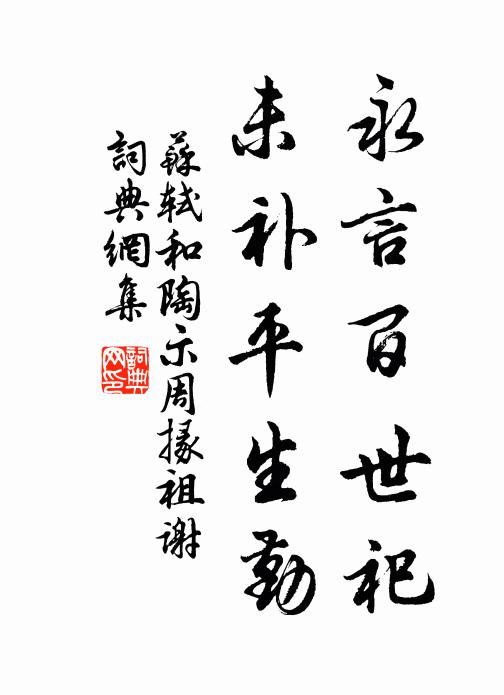 永言百世祀
未补平生勤
蘇轼和陶示周掾祖谢
詞典網集
詞典
网印